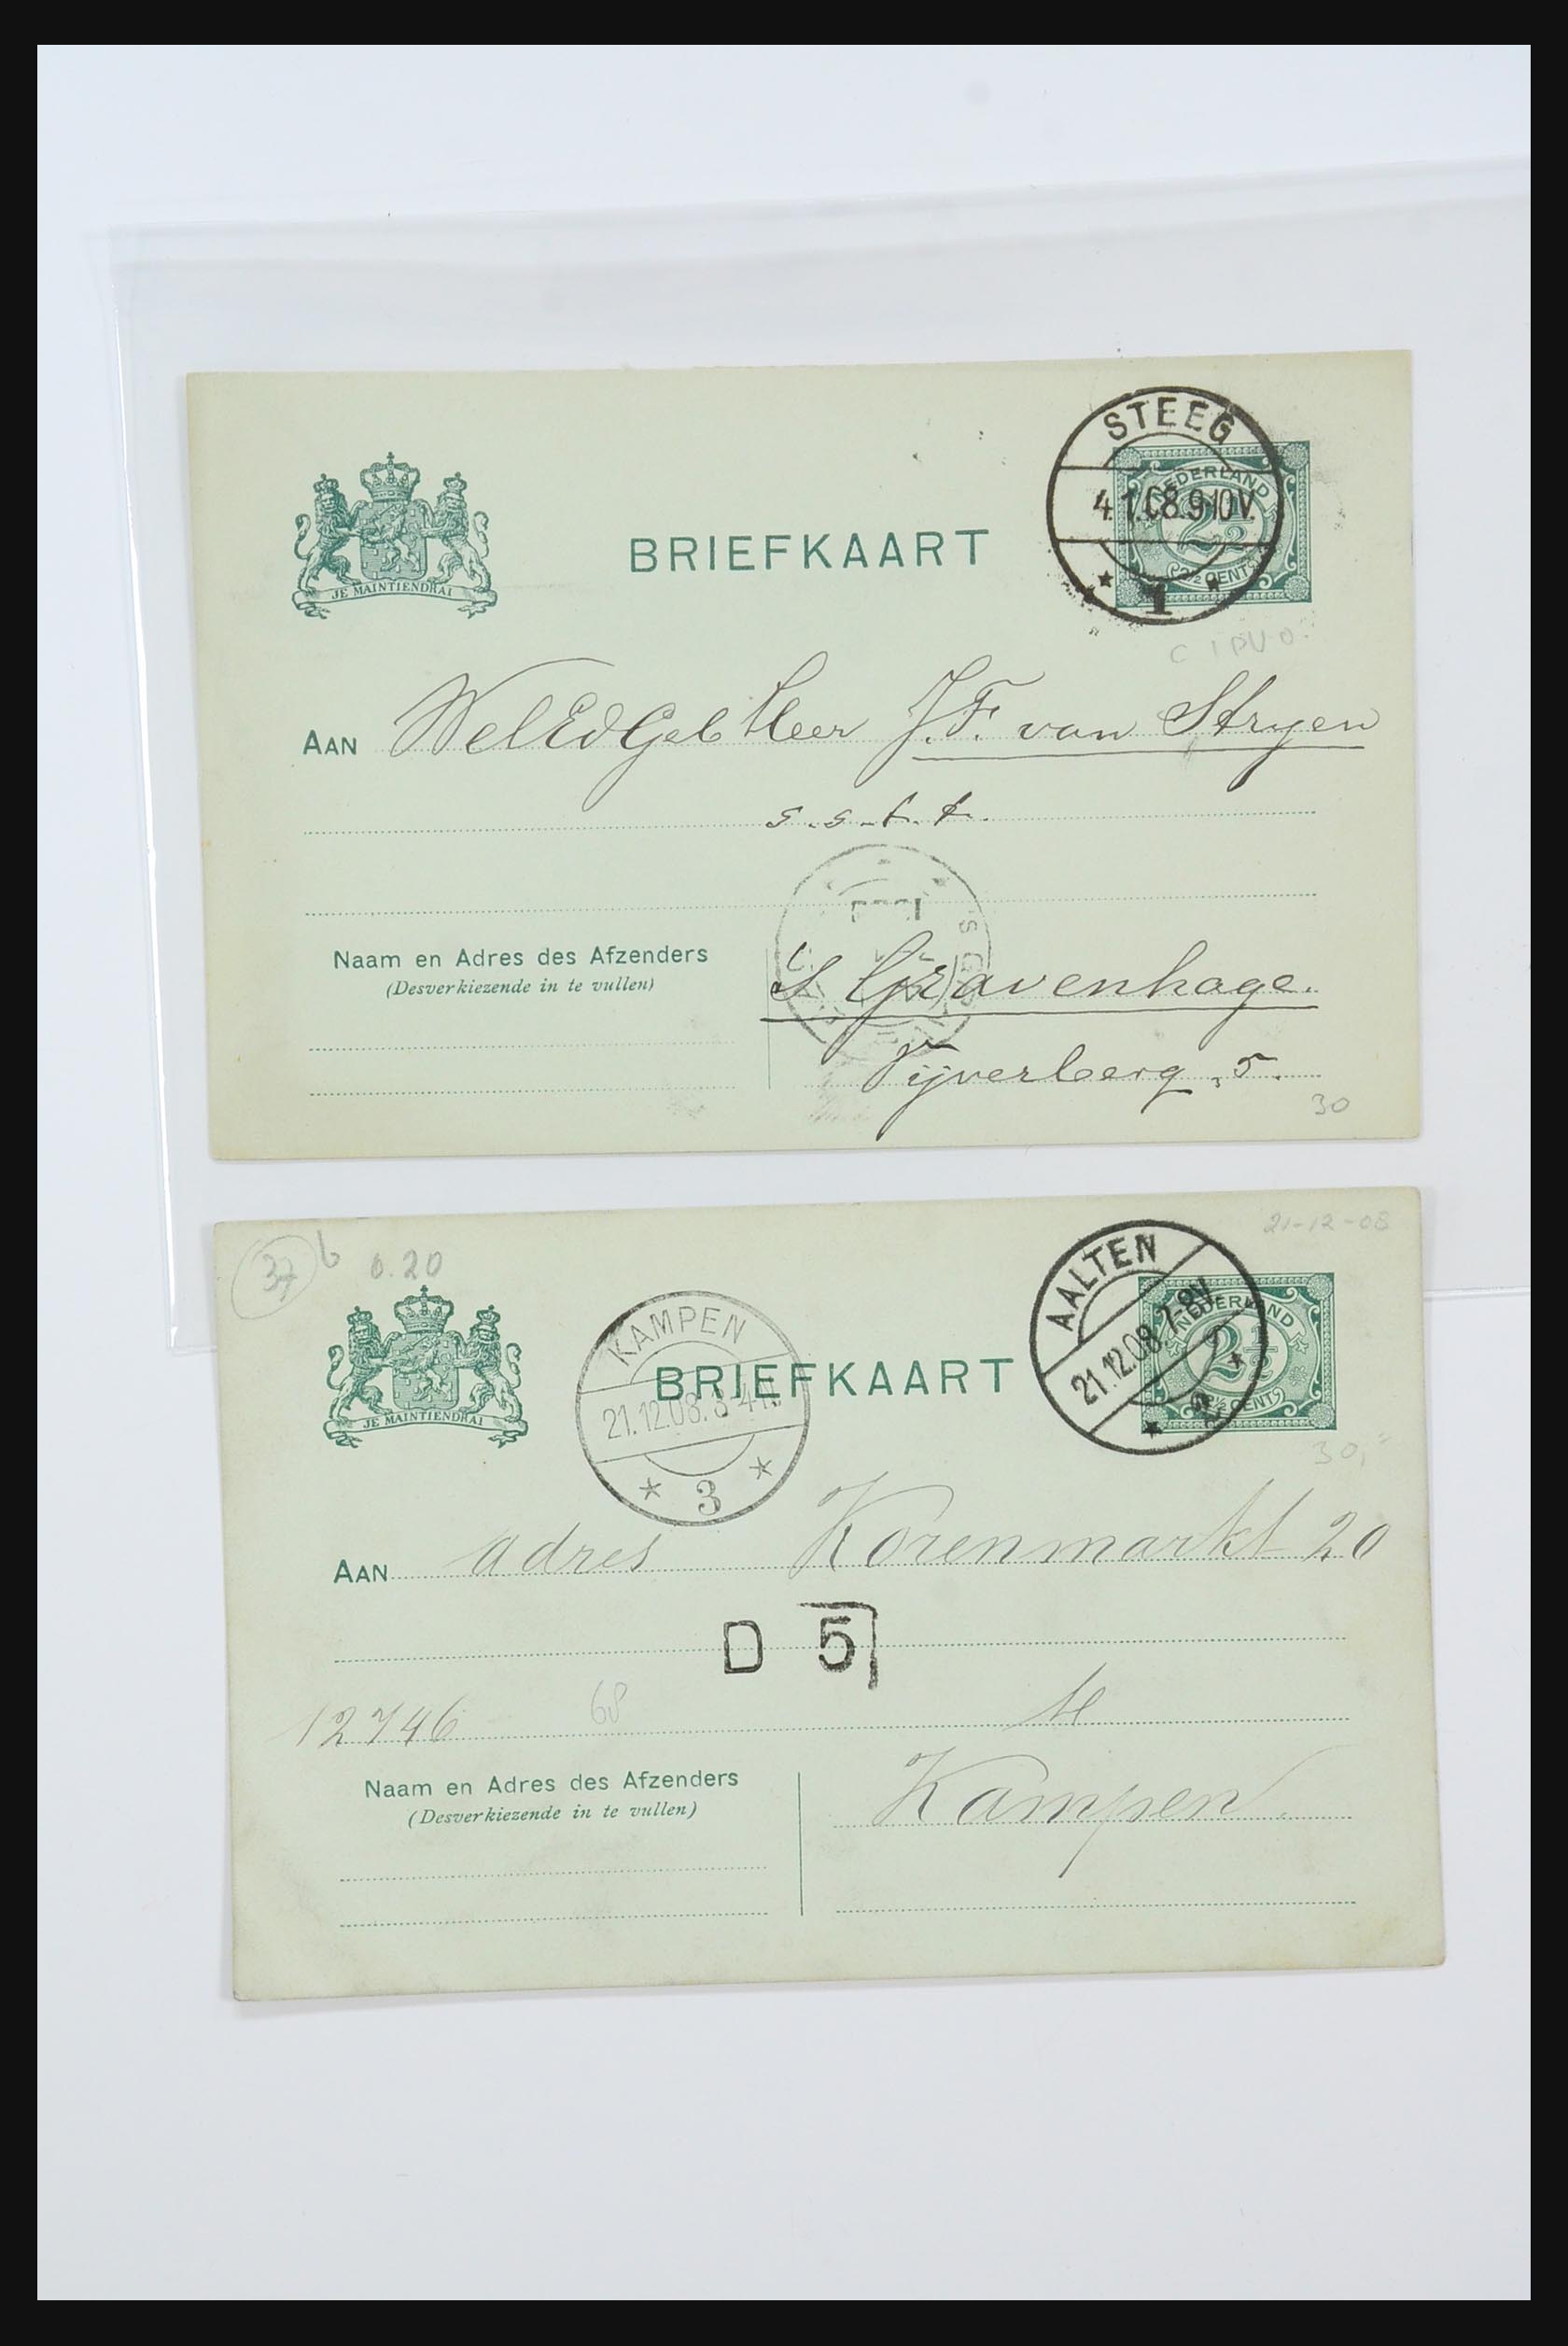 STEEG
4.1.08.9-10V.
1
NEDERLAND
2½
2½ CENT
JE MAINTIENDRAI
BRIEFKAART
AAN WelEdGeb Heer J.F. van Stryen
s.s.t.t.
Naam en Adres des Afzenders
(Desverkiezende in te vullen)
's Gravenhage.
Vijverberg 5.
30
37 b 0.20
21-12-08
AALTEN
21.12.08 7-8V
2
NEDERLAND
2½
2½ CENT
KAMPEN
21.12.08. 3-4N
3
JE MAINTIENDRAI
BRIEFKAART
30,=
AAN adres Korenmarkt 20
D 5
12746 68 te
Naam en Adres des Afzenders
(Desverkiezende in te vullen)
Kampen.